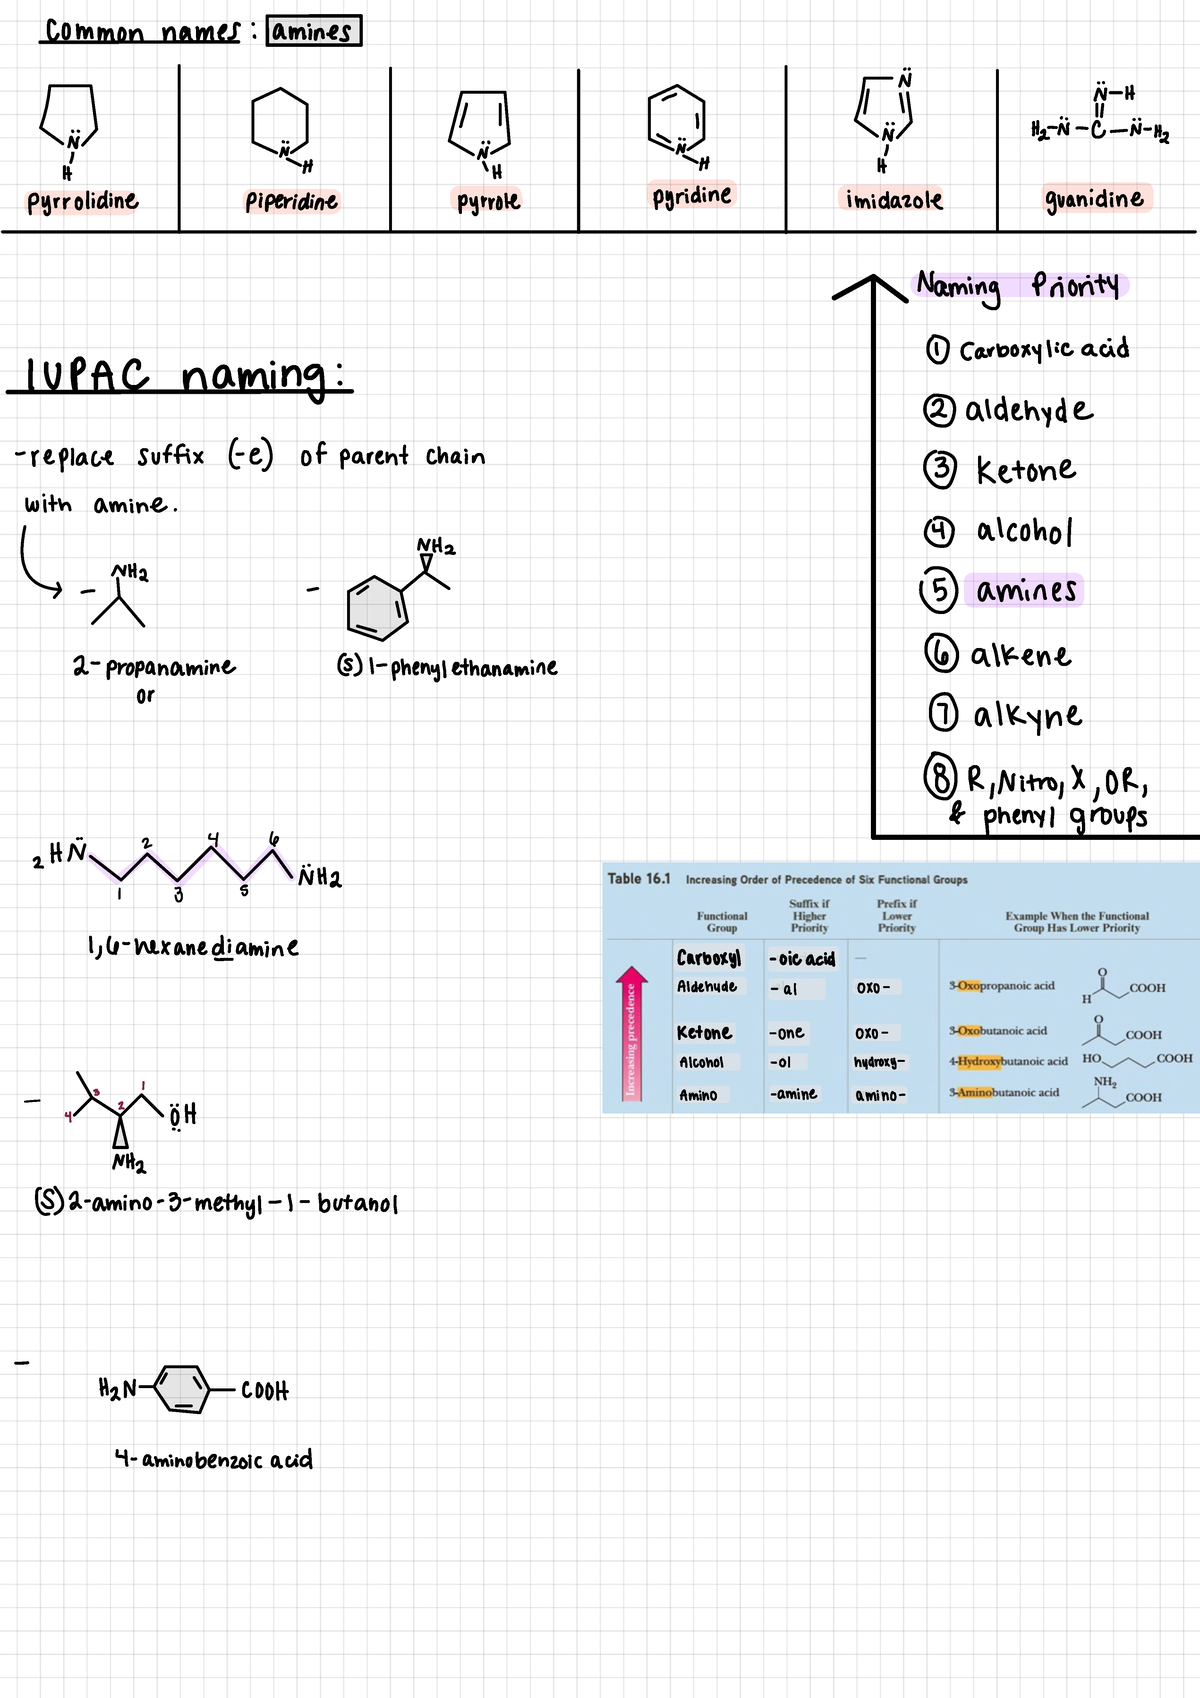 Common names: amines
N̈
H
pyrrolidine
N̈
H
Piperidine
N̈
H
pyrrole
N̈
H
pyridine
N̈
N̈
H
imidazole
N̈-H
H₂-N̈-C-N̈-H₂
guanidine
Naming Priority
① Carboxylic acid
② aldehyde
③ Ketone
④ alcohol
⑤ amines
⑥ alkene
⑦ alkyne
⑧ R, Nitro, X, OR,
& phenyl groups
IUPAC naming:
-replace suffix (-e) of parent chain
with amine.
- NH₂
2-propanamine
or
- NH₂
(S) 1-phenylethanamine
₂HN̈ 1 2 3 4 5 6 N̈H₂
1,6-hexanediamine
- 4 3 2 1 ÖH
NH₂
(S) 2-amino-3-methyl-1-butanol
-
H₂N COOH
4-aminobenzoic acid
Table 16.1 Increasing Order of Precedence of Six Functional Groups
Functional Group
Suffix if Higher Priority
Prefix if Lower Priority
Example When the Functional Group Has Lower Priority
Increasing precedence
Carboxyl -oic acid —
Aldehyde -al oxo- 3-Oxopropanoic acid O H COOH
Ketone -one oxo- 3-Oxobutanoic acid O COOH
Alcohol -ol hydroxy- 4-Hydroxybutanoic acid HO COOH
Amino -amine amino- 3-Aminobutanoic acid NH₂ COOH